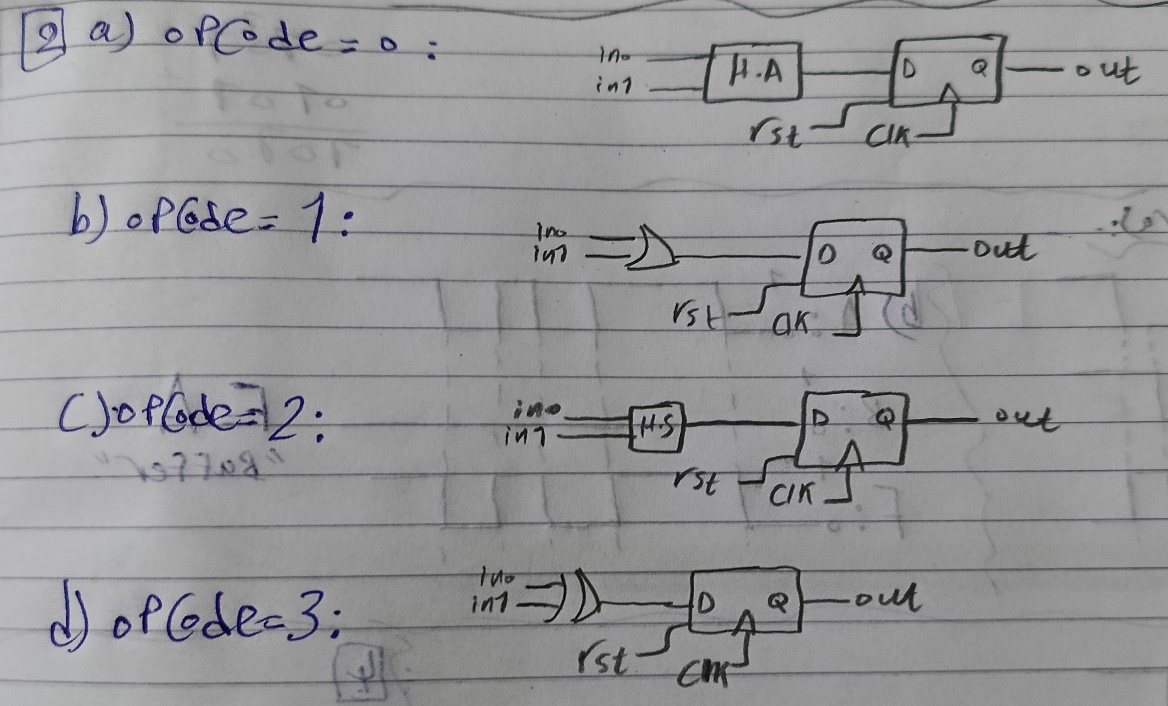 2 a) opCode = 0 :
in0
in1
H.A
D Q
out
rst
Clk
b) opCode = 1 :
in0
in1
D Q
out
rst
Clk
c) opCode = 2 :
in0
in1
H.S
D Q
out
rst
Clk
"Buffer"
d) opCode = 3 :
in0
in1
D Q
out
rst
Clk